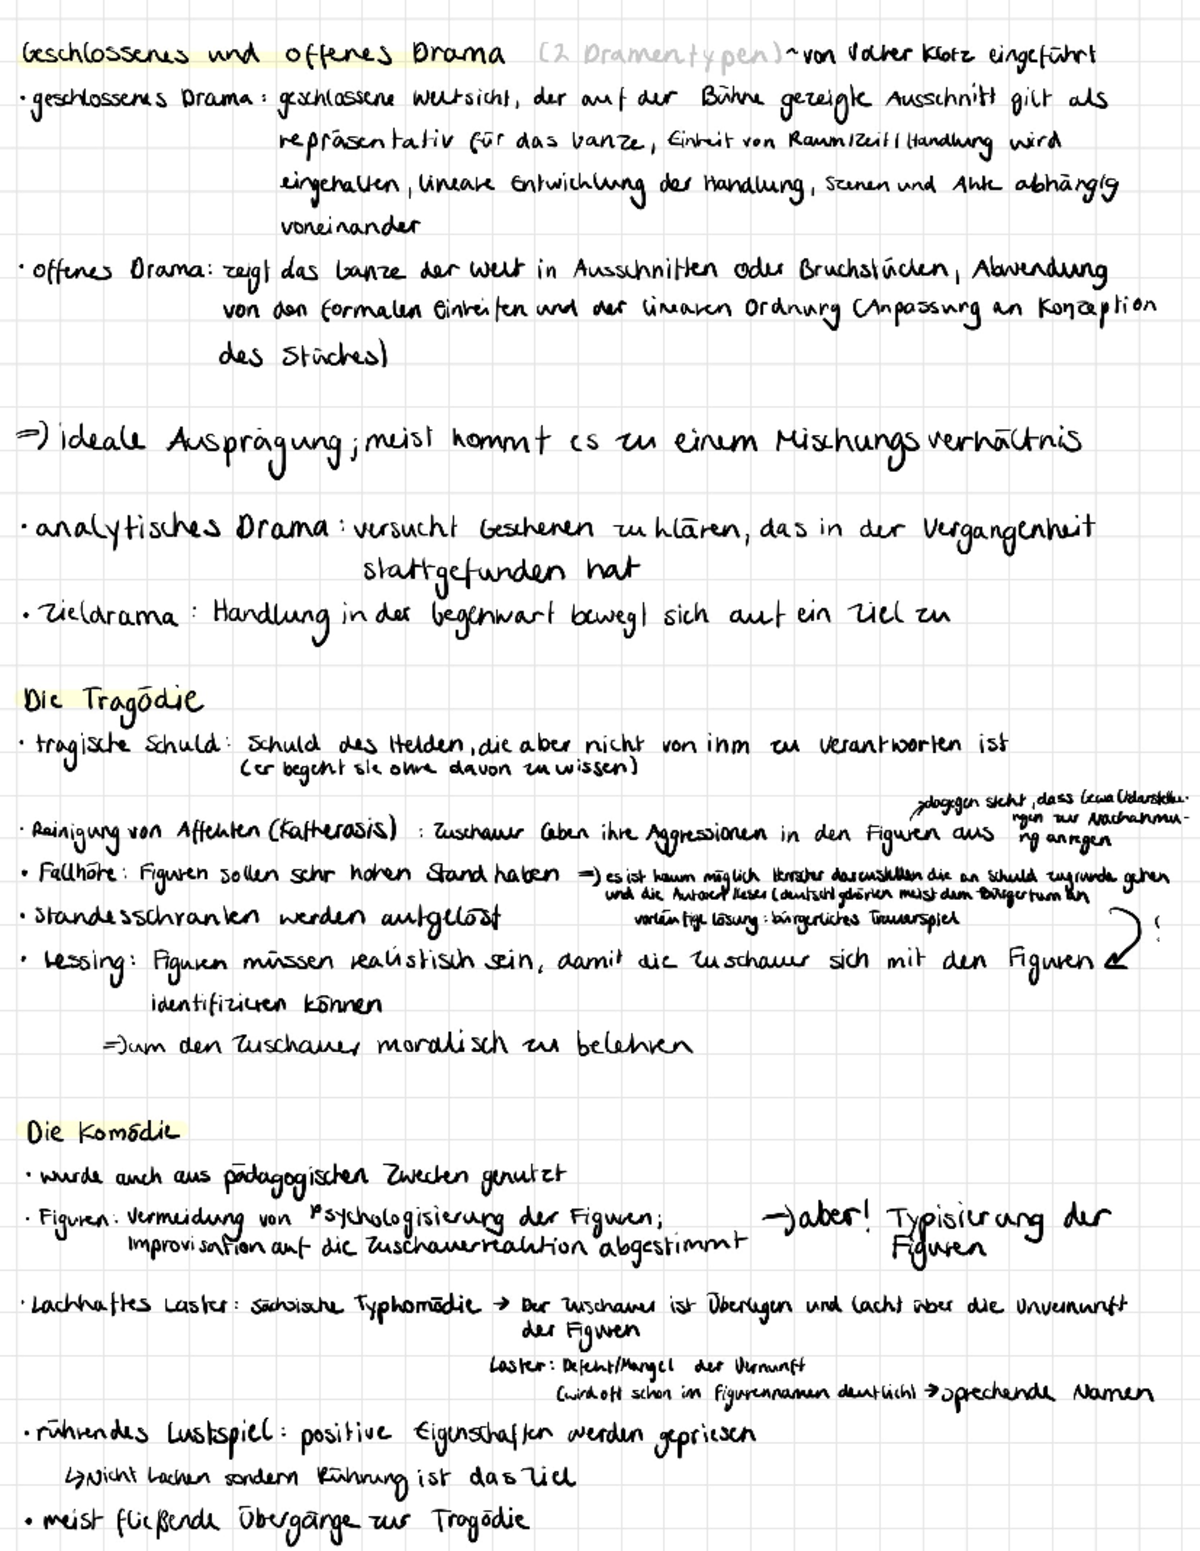 Geschlossenes und offenes Drama (2 Dramentypen) ~ von Volker Klotz eingeführt
· geschlossenes Drama: geschlossene Weltsicht, der auf der Bühne gezeigte Ausschnitt gilt als
repräsentativ für das Ganze, Einheit von Raum/Zeit/Handlung wird
eingehalten, lineare Entwicklung der Handlung, Szenen und Akte abhängig
voneinander
· offenes Drama: zeigt das Ganze der Welt in Ausschnitten oder Bruchstücken, Abwendung
von den formalen Einheiten und der linearen Ordnung (Anpassung an Konzeption
des Stückes)
=> ideale Ausprägung; meist kommt es zu einem Mischungsverhältnis
· analytisches Drama: versucht Geschehen zu klären, das in der Vergangenheit
stattgefunden hat
· Zieldrama: Handlung in der Gegenwart bewegt sich auf ein Ziel zu
Die Tragödie
· tragische Schuld: Schuld des Helden, die aber nicht von ihm zu verantworten ist
(er begeht sie ohne davon zu wissen)
→ dagegen steht, dass Gewaltdarstellu-
ngen zur Nachahmu-
ng anregen
· Reinigung von Affekten (Katherasis) : Zuschauer leben ihre Aggressionen in den Figuren aus
· Fallhöhe: Figuren sollen sehr hohen Stand haben => es ist kaum möglich Herrscher darzustellen die an Schuld zugrunde gehen
und die Autoren dieser (deutsch) gehören meist dem Bürgertum an
· Standesschranken werden aufgelöst vorläufige Lösung: bürgerliches Trauerspiel
· Lessing: Figuren müssen realistisch sein, damit die Zuschauer sich mit den Figuren
identifizieren können
=> um den Zuschauer moralisch zu belehren
Die Komödie
· wurde auch aus pädagogischen Zwecken genutzt
· Figuren: Vermeidung von Psychologisierung der Figuren; → aber! Typisierung der
Improvisation auf die Zuschauerreaktion abgestimmt Figuren
· Lachhaftes Laster: Sächsische Typkomödie → Der Zuschauer ist Überlegen und lacht über die Unvernunft
der Figuren
Laster: Defekt/Mangel der Vernunft
(wird oft schon im Figurennamen deutlich) → sprechende Namen
· rührendes Lustspiel: positive Eigenschaften werden gepriesen
↳ Nicht Lachen sondern Rührung ist das Ziel
· meist fließende Übergänge zur Tragödie